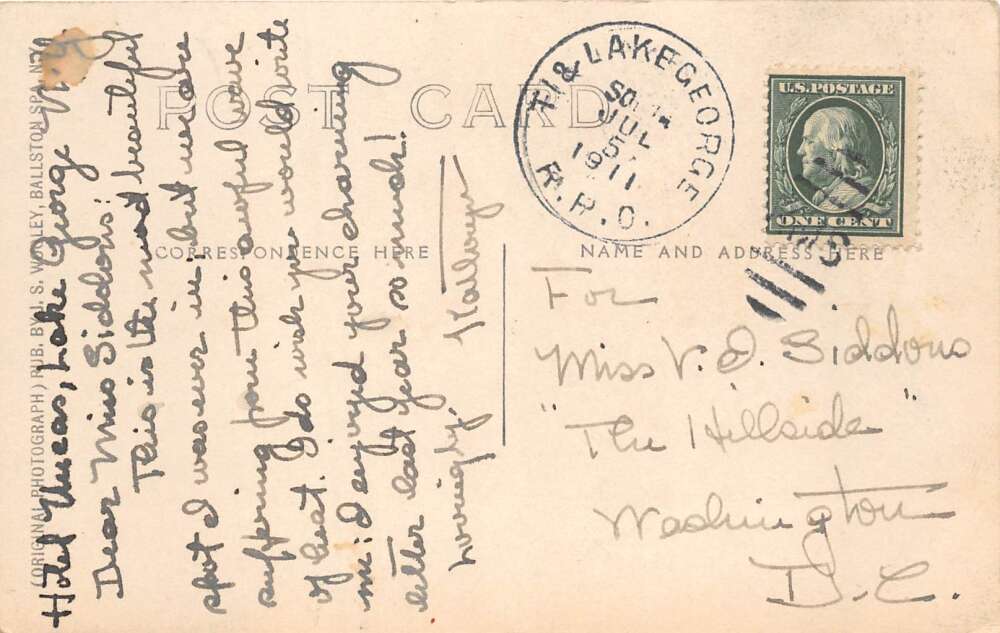 (ORIGINAL PHOTOGRAPH) PUB. BY J. S. WOOLEY, BALLSTON SPA, N.Y.
POST CARD
CORRESPONDENCE HERE
NAME AND ADDRESS HERE
Hotel Uncas, Lake George N.Y.
Dear Miss Siddons:
This is the most beautiful
spot I was ever in, but we are
suffering from this awful wave
of heat. I do wish you would write
me; I enjoyed your charming
letter last year so much!
Lovingly,
Kathryn
TI & LAKE GEORGE
JUL
5
1911
R.P.O.
U.S. POSTAGE
ONE CENT
For
Miss V. D. Siddons
"The Hillside"
Washington
D.C.